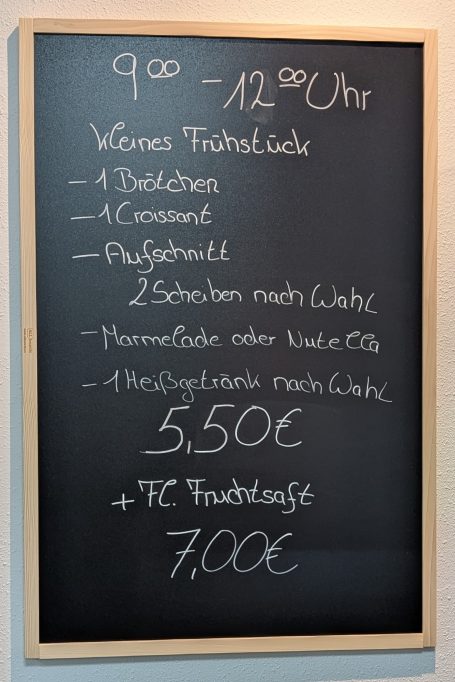 9 00 - 12 00 Uhr
kleines Frühstück
- 1 Brötchen
- 1 Croissant
- Aufschnitt
2 Scheiben nach Wahl
- Marmelade oder Nutella
- 1 Heißgetränk nach Wahl
5,50€
+ Fl. Fruchtsaft
7,00€